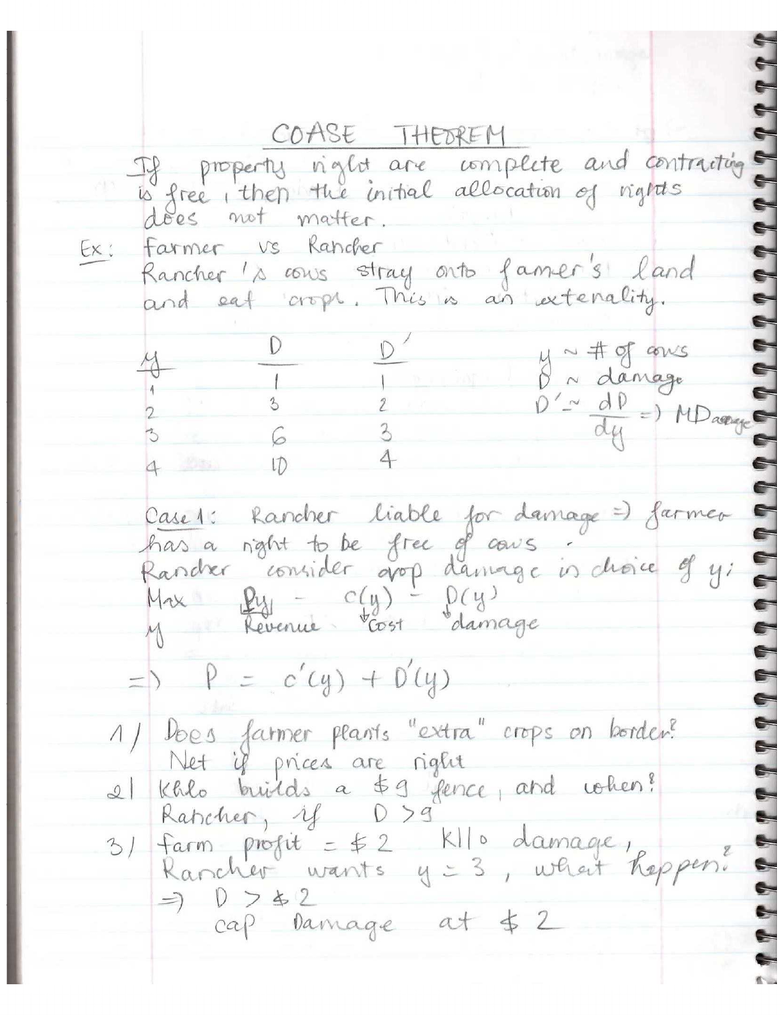 COASE THEOREM
If property right are complete and contracting
is free, then the initial allocation of rights
does not matter.
Ex: farmer vs Rancher
Rancher's cows stray onto famer's land
and eat crops. This is an extenality.
y D D' y ~ # of cows
1 1 1 D ~ damage
2 3 2 D' ~ dD/dy => MDamage
3 6 3
4 10 4
Case 1: Rancher liable for damage => farmer
has a right to be free of cows.
Rancher consider crop damage in choice of y:
Max Py - c(y) - D(y)
y Revenue ↓Cost ↓damage
=> P = c'(y) + D'(y)
1/ Does farmer plants "extra" crops on border?
Net if prices are right
2/ builds a $9 fence, and when?
Rancher, if D > 9
3/ farm profit = $2 damage,
Rancher wants y = 3, what happen?
=> D > $2
cap Damage at $2